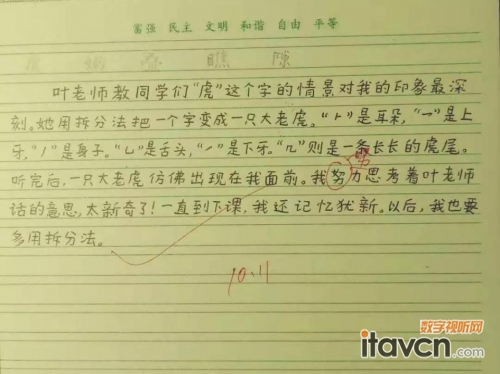 富强 民主 文明 和谐 自由 平等
瞧 隙
叶老师教同学们“虎”这个字的情景对我的印象最深
刻。她用拆分法把一个字变成一只大老虎。“⺊”是耳朵,“乛”是上
牙,“丿”是身子。“乚”是舌头,“㇀”是下牙。“几”则是一条长长的虎尾。
听完后,一只大老虎仿佛出现在我面前。我努力思考着叶老师
话的意思,太新奇了!一直到下课,我还记忆犹新。以后,我也要
多用拆分法。
10.11
数字视听网
itavcn.com